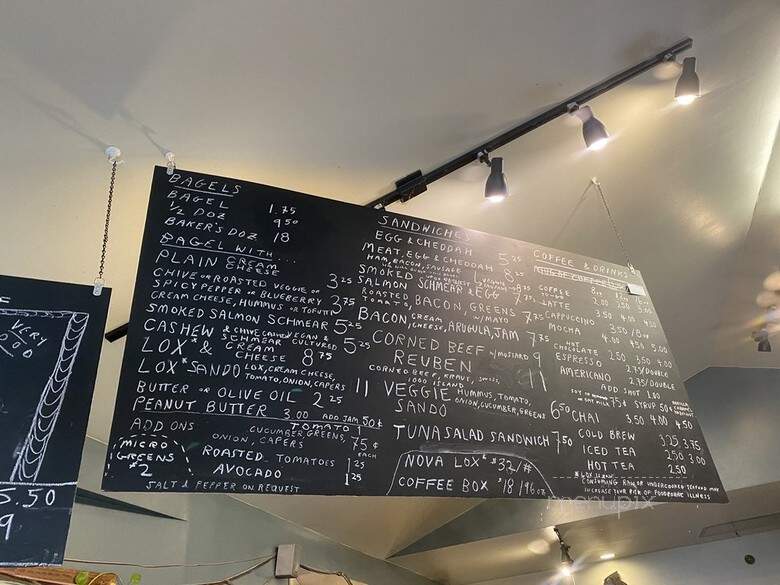 VERY
GOOD
5.50
9
BAGELS
BAGEL 1.75
1/2 DOZ 9 50
BAKER'S DOZ 18
BAGEL WITH...
PLAIN CREAM CHEESE 3 25
CHIVE OR ROASTED VEGGIE OR
SPICY PEPPER OR BLUEBERRY 3 75
CREAM CHEESE, HUMMUS OR TOFUTTI
SMOKED SALMON SCHMEAR 5 25
CASHEW & CHIVE VEGAN & CULTURED 5 25
SCHMEAR
LOX* & CREAM CHEESE 8 75
LOX* SANDO LOX, CREAM CHEESE, 11
TOMATO, ONION, CAPERS
BUTTER OR OLIVE OIL 2 25
PEANUT BUTTER 3.00 ADD JAM 50¢
ADD ONS TOMATO 1
CUCUMBER, GREENS, 75¢
ONION, CAPERS EACH
ROASTED TOMATOES 1 25
AVOCADO 1 25
MICRO
GREENS
$2
SALT & PEPPER ON REQUEST
SANDWICHES
EGG & CHEDDAR 5 25
MEAT, EGG & CHEDDAR 8 25
HAM, BACON, SAUSAGE
SMOKED
SALMON SCHMEAR & EGG 7 75
ROASTED TOMATO, BACON, GREENS W/MAYO 7 25
BACON CREAM CHEESE, ARUGULA, JAM 7 75
CORNED BEEF W/MUSTARD 9
REUBEN 11
CORNED BEEF, KRAUT, SWISS,
1000 ISLAND
VEGGIE SANDO HUMMUS, TOMATO,
ONION, CUCUMBER, GREENS 6 50
TUNA SALAD SANDWICH 7 50
NOVA LOX* $32/#
COFFEE BOX $18/96 oz
COFFEE & DRINKS
COFFEE
LATTE 3.50 4.00 4.50
CAPPUCCINO
MOCHA
HOT CHOCOLATE 2.50 3.50 4.00
ESPRESSO 2.75/DOUBLE
AMERICANO 2.75/DOUBLE
ADD SHOT 1.00
SYRUP 50¢
CHAI 3.50 4.00 4.50
COLD BREW 3.25 3.75
ICED TEA 2.50 3.00
HOT TEA 2.50
CONSUMING RAW OR UNDERCOOKED SEAFOOD MAY
INCREASE YOUR RISK OF FOODBORNE ILLNESS
menupix